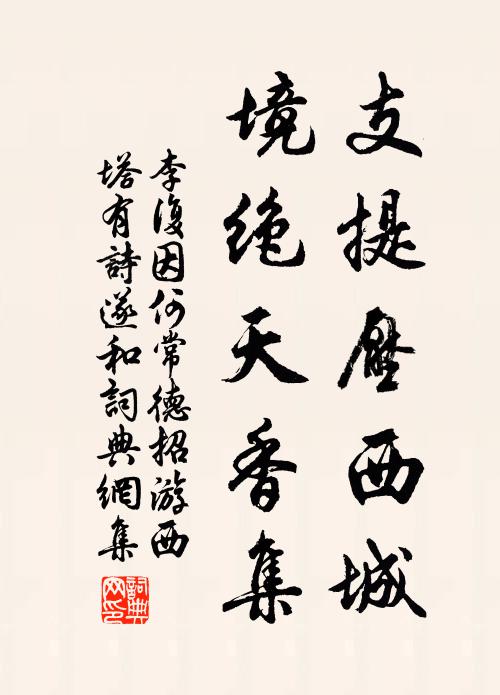 支提壓西城
境絶天香集
李復因何常德招游西
塔有詩遂和詞典網集
詞典網印